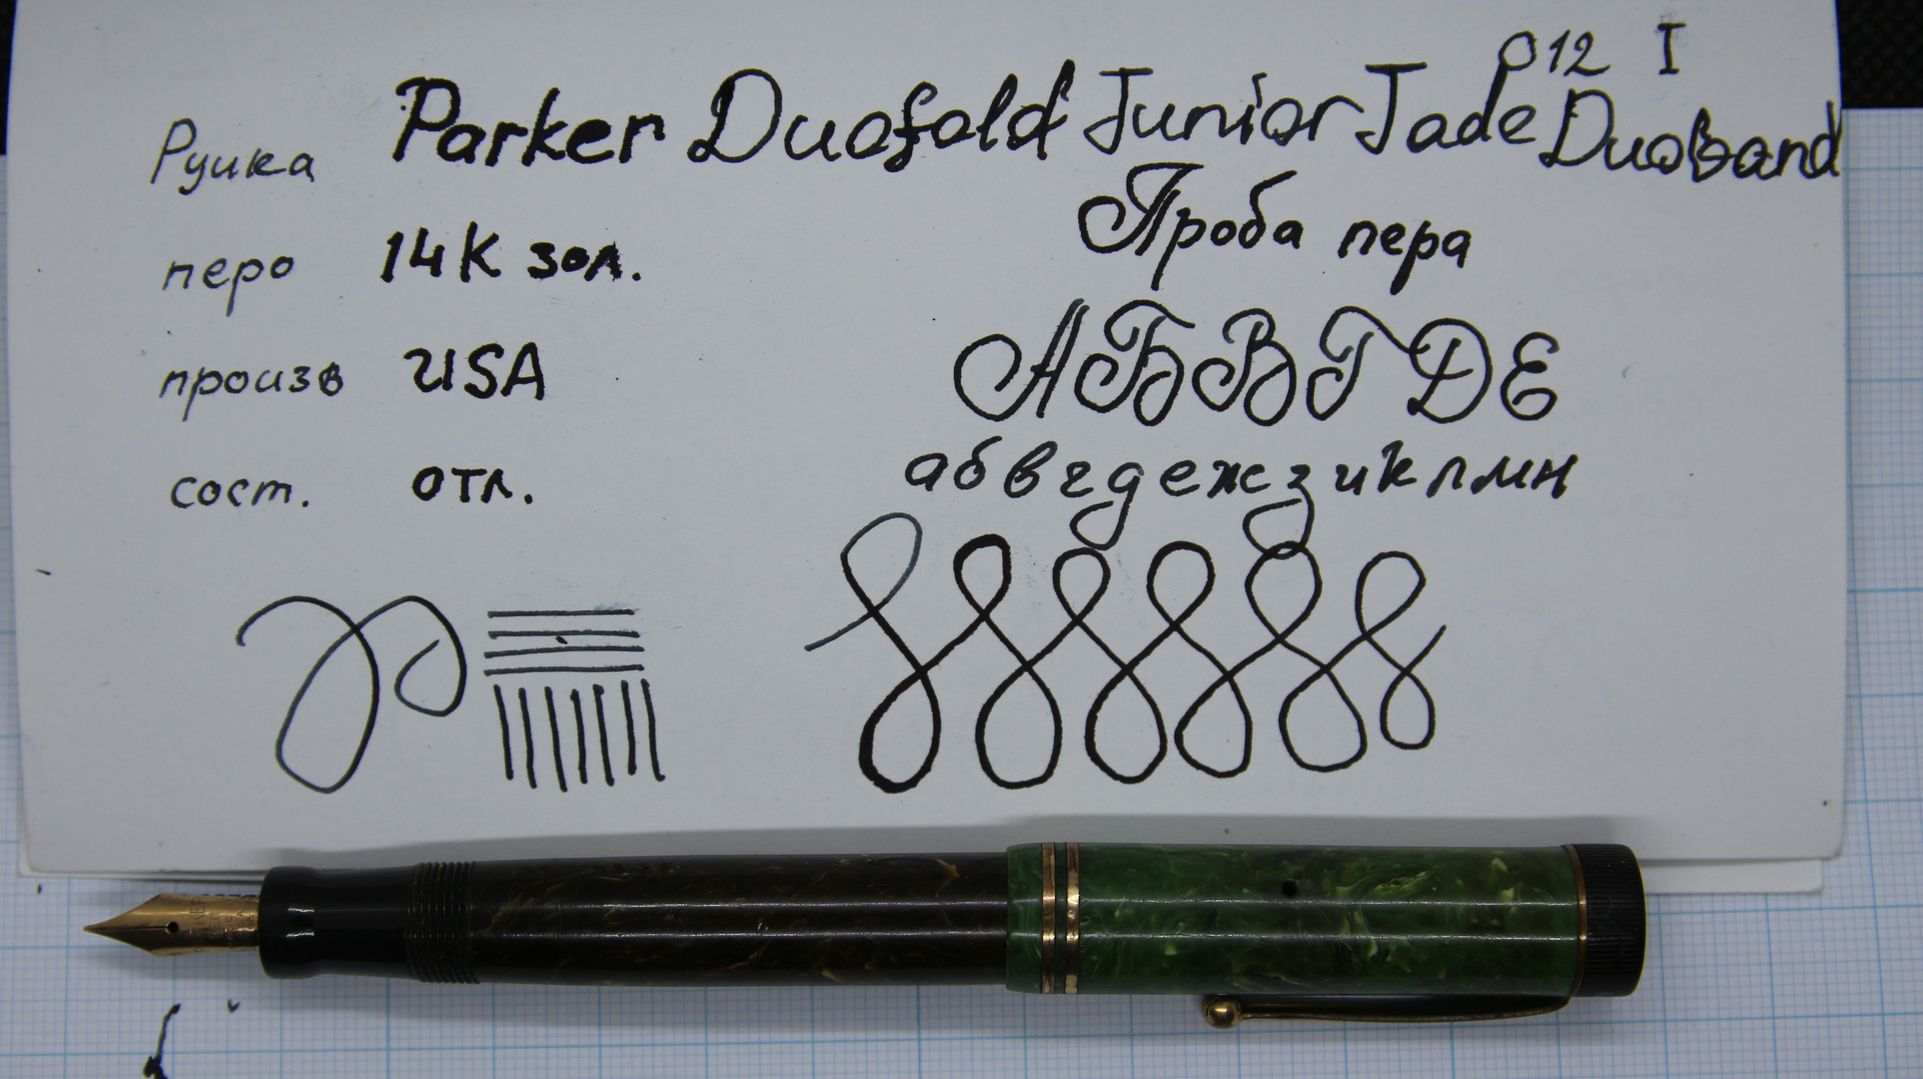 Ø12 I
Ручка Parker Duofold Junior Jade Duoband
Проба пера
перо 14K зол.
произв USA
АБВГДЕ
сост. отл.
абвгдежзиклмн